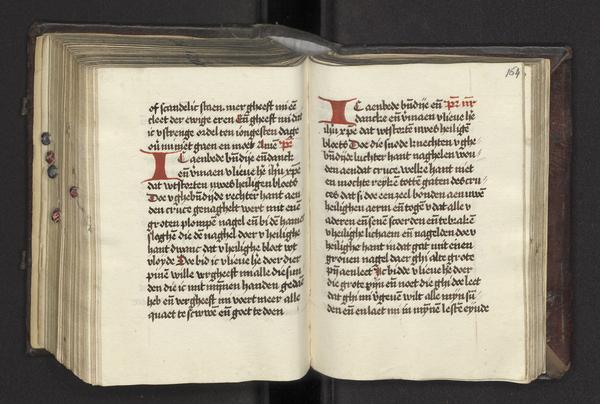 of scandelic staen. mer gheeft mi eē
cleet der ewige eren Eñ gheeft mi dat
ic v strenge ordel ten iongesten dage
ou mi niet gaen en moet Amen Pr̄
IC aenbede bn̄dije eñ danck
eñ v̄maen v lieue he ih̄u xp̄e
dat wtstorten uwes heiligen bloets
Doe v ghebn̄dijde rechter hant aen
den cruce genaghelt wert mit enē
groten plompē nagel eñ bi dē hamer
sleghē die dē naghel doer v heilighe
hant dwanc dat v heilighe bloet wt
vloyde Doe bid ic v lieue he doer dier
pinē wille v̄gheeft mi alle die sun
den die ic mit mijnen handen gedaē
heb eñ v̄gheeft mi voert meer alle
quaet te scuwē eñ goet te doen
164
IC aenbede bn̄dije eñ Pr̄ nr̄
dancke eñ v̄maen v lieue he
ih̄u xp̄e dat wtstortē uwes heiligē
bloets Doe die snode knechten v ghe
bn̄dijde luchter hant naghelen wou
den aen dat cruce. welke hant niet
en mochte reykē tottē gaten des cru
ces dat si doe een zeel bonden aen uwē
heilighen aerm eñ togē v dat alle v
aderen eñ senē scoerden eñ tebrakē
v heilighe lichaem eñ nagelden doe v
heilighe hant in dat gat mit einen
grouen nagel daer ghi alte grote
pijn aen leet Ic bidde v lieue he doer
die grote pijn eñ noet die ghi doe leet
dat ghi mi v̄geuē wilt alle mijn sū
den eñ en laet mi in mijnē lestē eynde